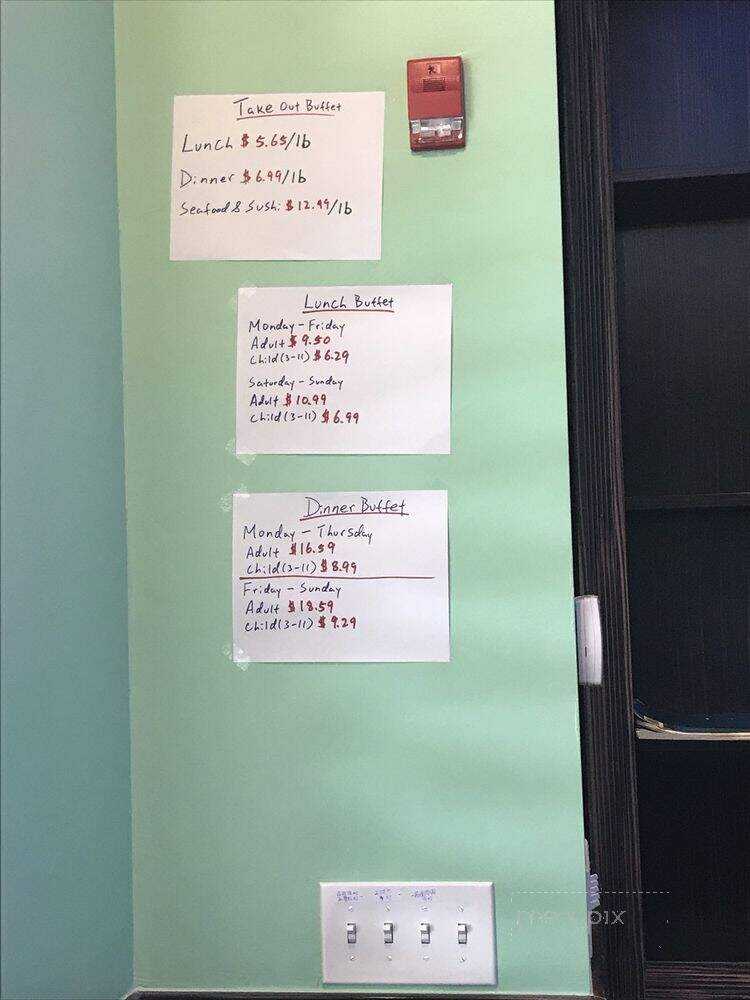 Take Out Buffet
Lunch $5.65/lb
Dinner $6.99/lb
Seafood & Sushi $12.99/lb
Lunch Buffet
Monday - Friday
Adult $9.50
Child (3-11) $6.29
Saturday - Sunday
Adult $10.99
Child (3-11) $6.99
Dinner Buffet
Monday - Thursday
Adult $16.59
Child (3-11) $8.99
Friday - Sunday
Adult $18.59
Child (3-11) $9.29